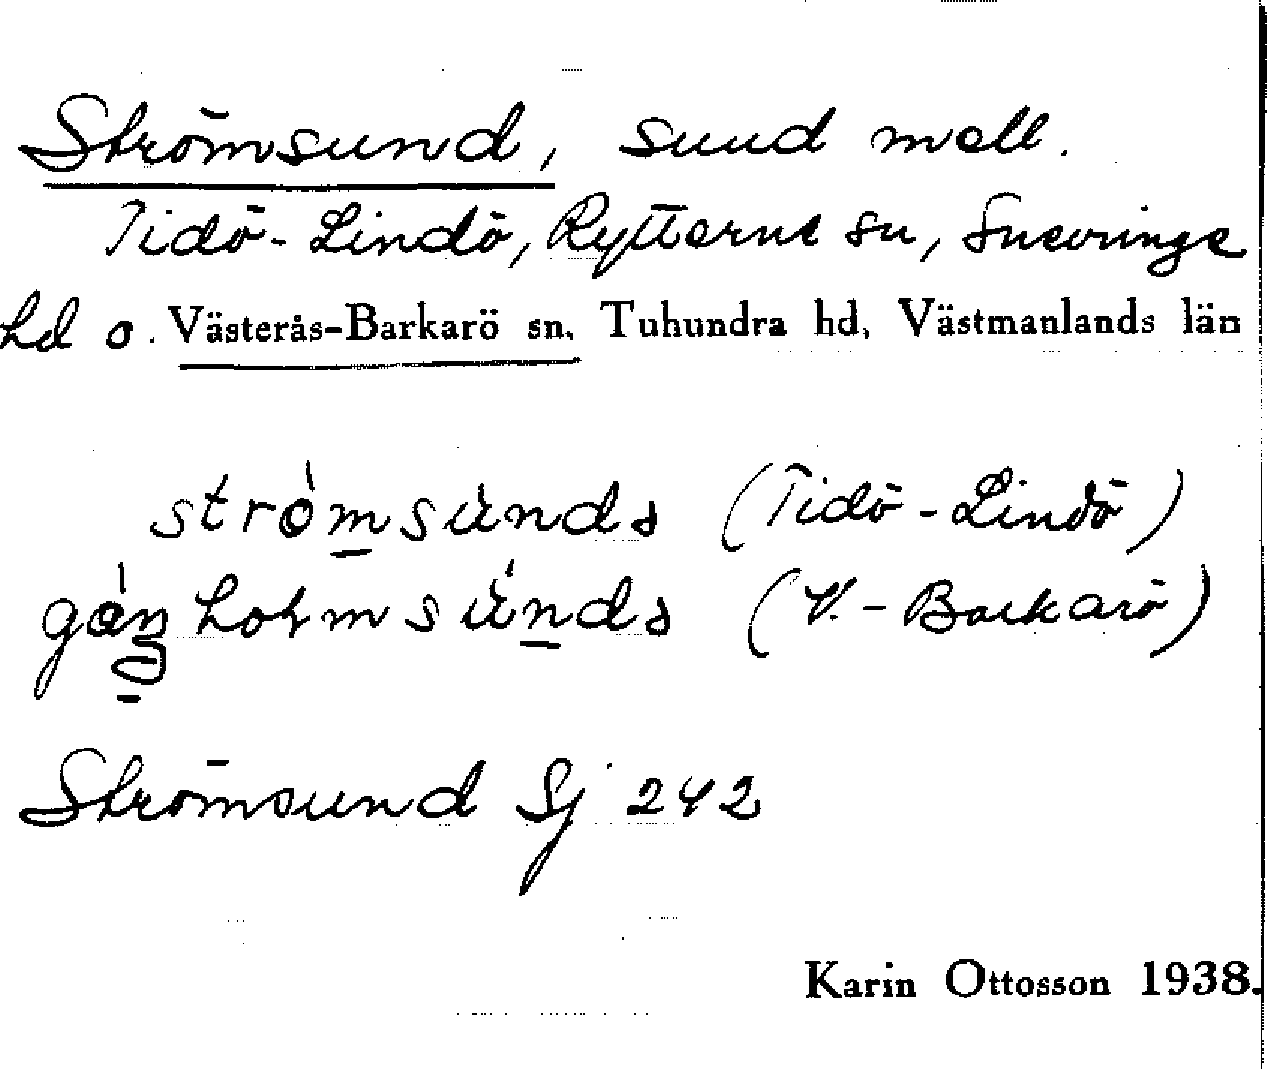 Strömsund, sund mell.
Tidö-Lindö, Rytterne sn, Snevringe
hd o. Västerås-Barkarö sn, Tuhundra hd, Västmanlands län
strömsùnds (Tidö-Lindö)
holmsùnds (V.-Barkarö)
Strömsund Sj 242
Karin Ottosson 1938.